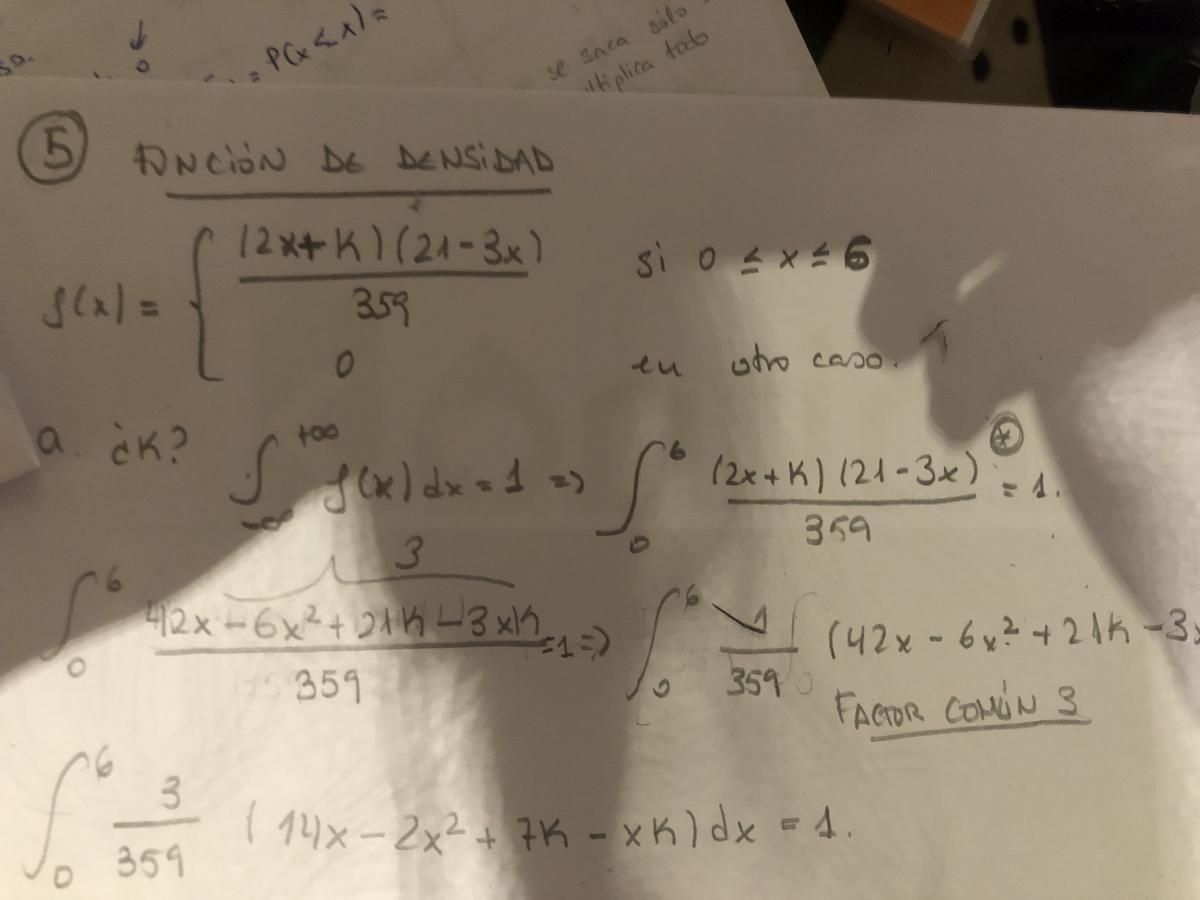 so.
↓
0
= P(X ≤ x) =
se saca sólo
ltiplica todo
⑤ FUNCIÓN DE DENSIDAD
f(x) = { (2x+K)(21-3x) / 359 si 0 ≤ x ≤ 6
0 en otro caso.
a. ¿K? ∫_{-∞}^{+∞} f(x) dx = 1 => ∫_0^6 (2x+K)(21-3x) / 359 = 1. ⊛
3
∫_0^6 42x - 6x² + 21K - 3xK / 359 = 1 => ∫_0^6 1/359 (42x - 6x² + 21K - 3x
FACTOR COMÚN 3
∫_0^6 3/359 (14x - 2x² + 7K - xK) dx = 1.